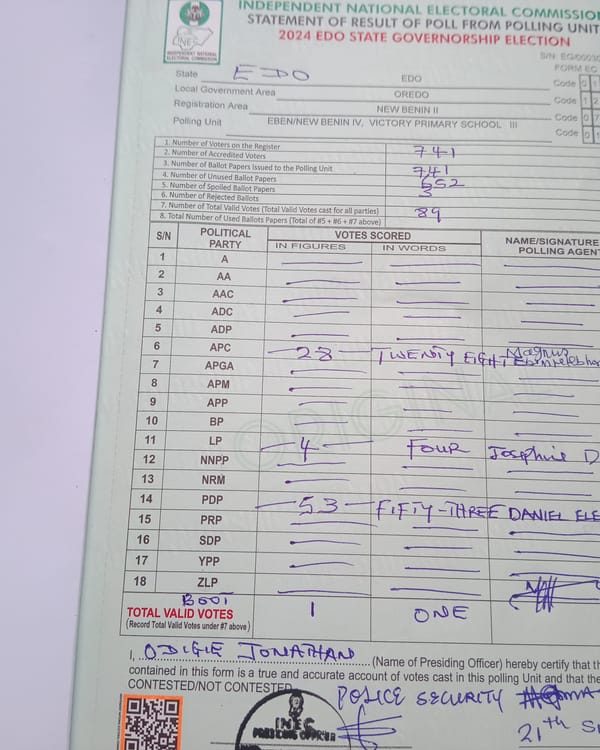 INDEPENDENT NATIONAL ELECTORAL COMMISSION
STATEMENT OF RESULT OF POLL FROM POLLING UNIT
2024 EDO STATE GOVERNORSHIP ELECTION
FORM EC
State EDO EDO Code 0 1
Local Government Area OREDO Code 1 2
Registration Area NEW BENIN II Code 0 7
Polling Unit EBEN/NEW BENIN IV, VICTORY PRIMARY SCHOOL III Code 0 1
1. Number of Voters on the Register 741
2. Number of Accredited Voters
3. Number of Ballot Papers Issued to the Polling Unit 741
4. Number of Unused Ballot Papers 652
5. Number of Spoiled Ballot Papers
6. Number of Rejected Ballots 3
7. Number of Total Valid Votes (Total Valid Votes cast for all parties)
8. Total Number of Used Ballots Papers (Total of #5 + #6 + #7 above) 89
S/N POLITICAL PARTY VOTES SCORED NAME/SIGNATURE
IN FIGURES IN WORDS POLLING AGENT
1 A
2 AA
3 AAC
4 ADC
5 ADP
6 APC 28 TWENTY EIGHT Magnus
7 APGA
8 APM
9 APP
10 BP
11 LP 4 FOUR Josephine D
12 NNPP
13 NRM
14 PDP 53 FIFTY-THREE DANIEL ELE
15 PRP
16 SDP
17 YPP
18 ZLP
BOOT
TOTAL VALID VOTES 1 ONE
(Record Total Valid Votes under #7 above)
I, ODIGIE JONATHAN (Name of Presiding Officer) hereby certify that th
contained in this form is a true and accurate account of votes cast in this polling Unit and that the
CONTESTED/NOT CONTESTED
POLICE SECURITY
INEC
PRESIDING OFFICER
21th S
ORIGINAL